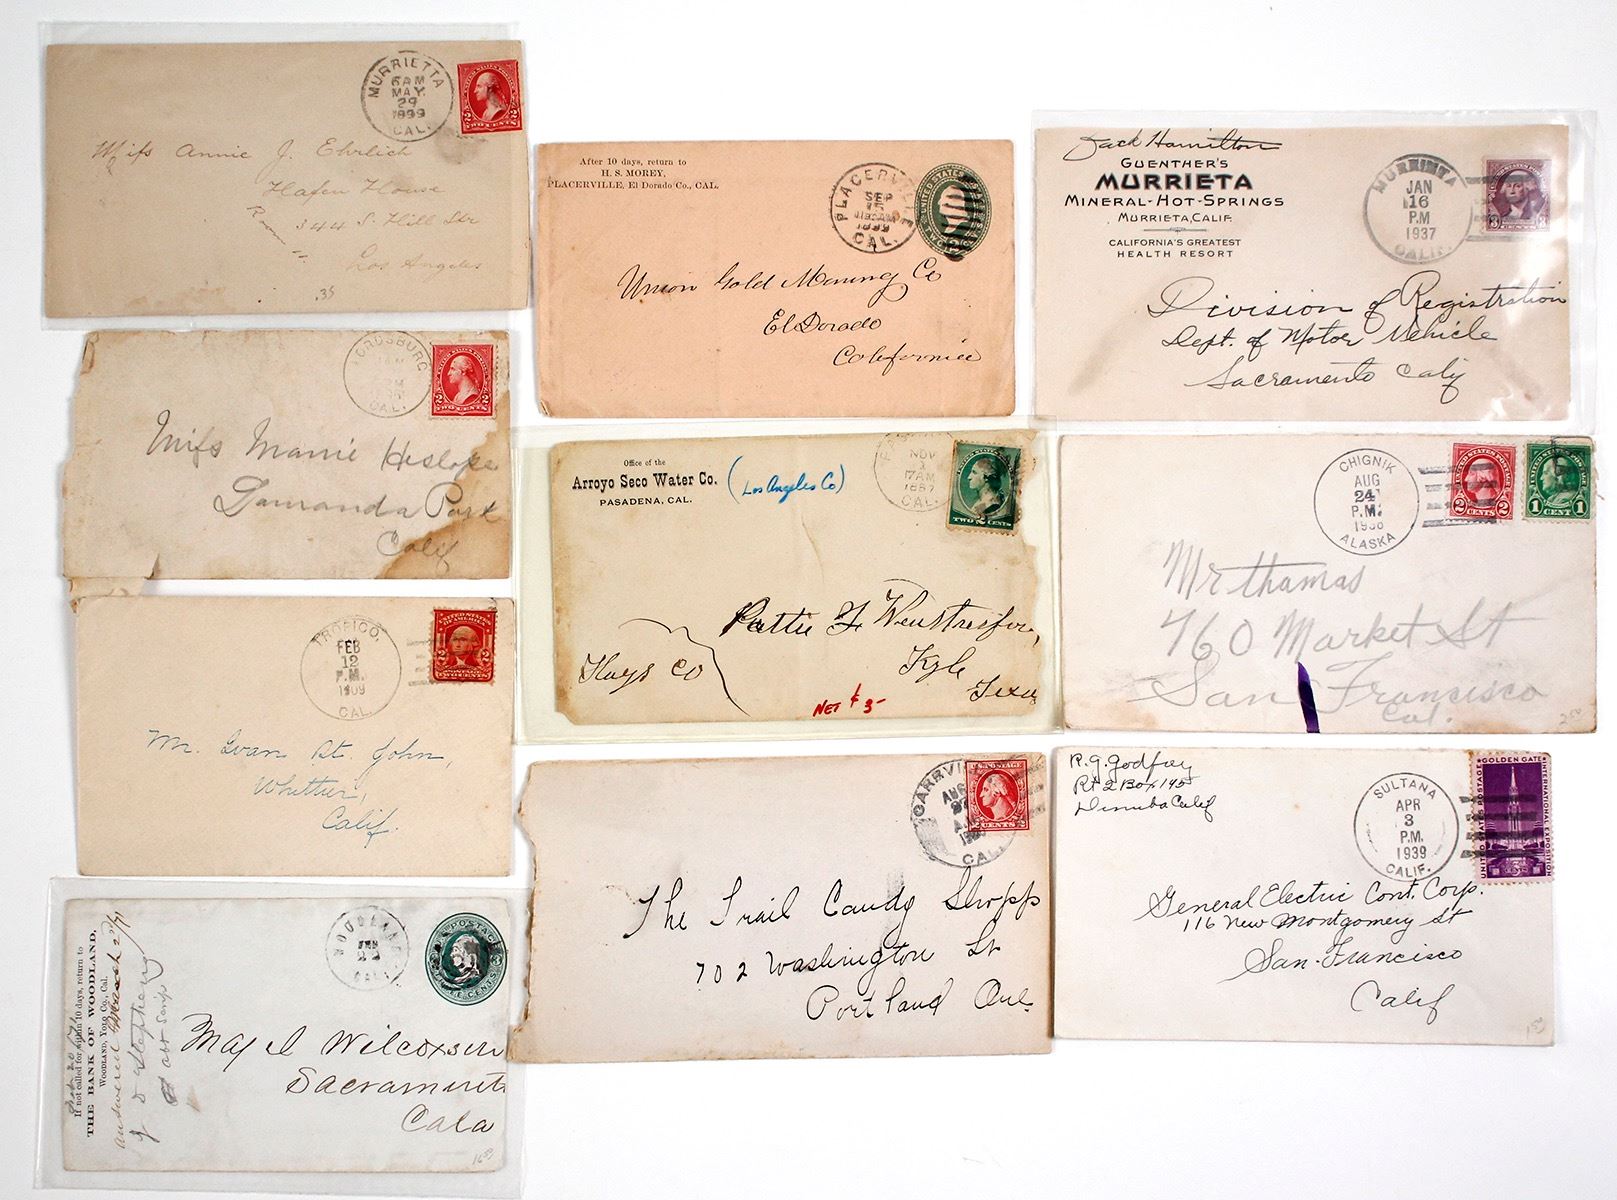 MURRIETTA
6 AM
MAY
29
1899
CAL.
TWO CENTS
Miss Annie J. Ehrlich
Hafen House
344 S. Hill Str
Los Angeles
.35
LORDSBURG
CAL.
TWO CENTS
Miss Mamie Heslope
Lamanda Park
Calif
TROPICO,
FEB
12
P.M.
1909
CAL.
UNITED STATES
OF AMERICA
2 2
POSTAGE
TWO CENTS
Mr. Evan St. John,
Whittier,
Calif.
If not called for within 10 days, return to
THE BANK OF WOODLAND,
Woodland, Yolo Co., Cal.
answered
WOODLAND
FEB
CAL.
POSTAGE
Maj I Wilcoxson
Sacramento
Cala
16 50
After 10 days, return to
H. S. MOREY,
PLACERVILLE, El Dorado Co., CAL.
PLACERVILLE
SEP
15
1899
CAL.
UNITED STATES
Union Gold Mining Co
El Dorado
California
Office of the
Arroyo Seco Water Co.
PASADENA, CAL.
(Los Angeles Co)
NOV
17AM
1887
CAL.
TWO 2 CENTS
Kyle
Hays Co
Texas
NET $3-
CAL.
U.S. POSTAGE
2 CENTS 2
The Trail Candy Shopp
702 Washington St
Portland Ore.
Jack Hamilton
GUENTHER'S
MURRIETA
MINERAL-HOT-SPRINGS
MURRIETA, CALIF.
CALIFORNIA'S GREATEST
HEALTH RESORT
MURRIETA
JAN
16
P.M
1937
CALIF.
3 CENTS 3
Division of Registration
Dept. of Motor Vehicle
Sacramento Calif
CHIGNIK
AUG
24
P.M.
1938
ALASKA
2 CENTS 2
1 CENT 1
Mr thamas
760 Market St
San Francisco
Cal.
2 50
R. G. Godfrey
Rt 2 Box 195
Dinuba Calif
SULTANA
APR
3
P.M.
1939
CALIF.
GOLDEN GATE
INTERNATIONAL EXPOSITION
UNITED STATES POSTAGE
3¢
General Electric Cont. Corp.
116 New Montgomery St
San-Francisco
Calif
1 50